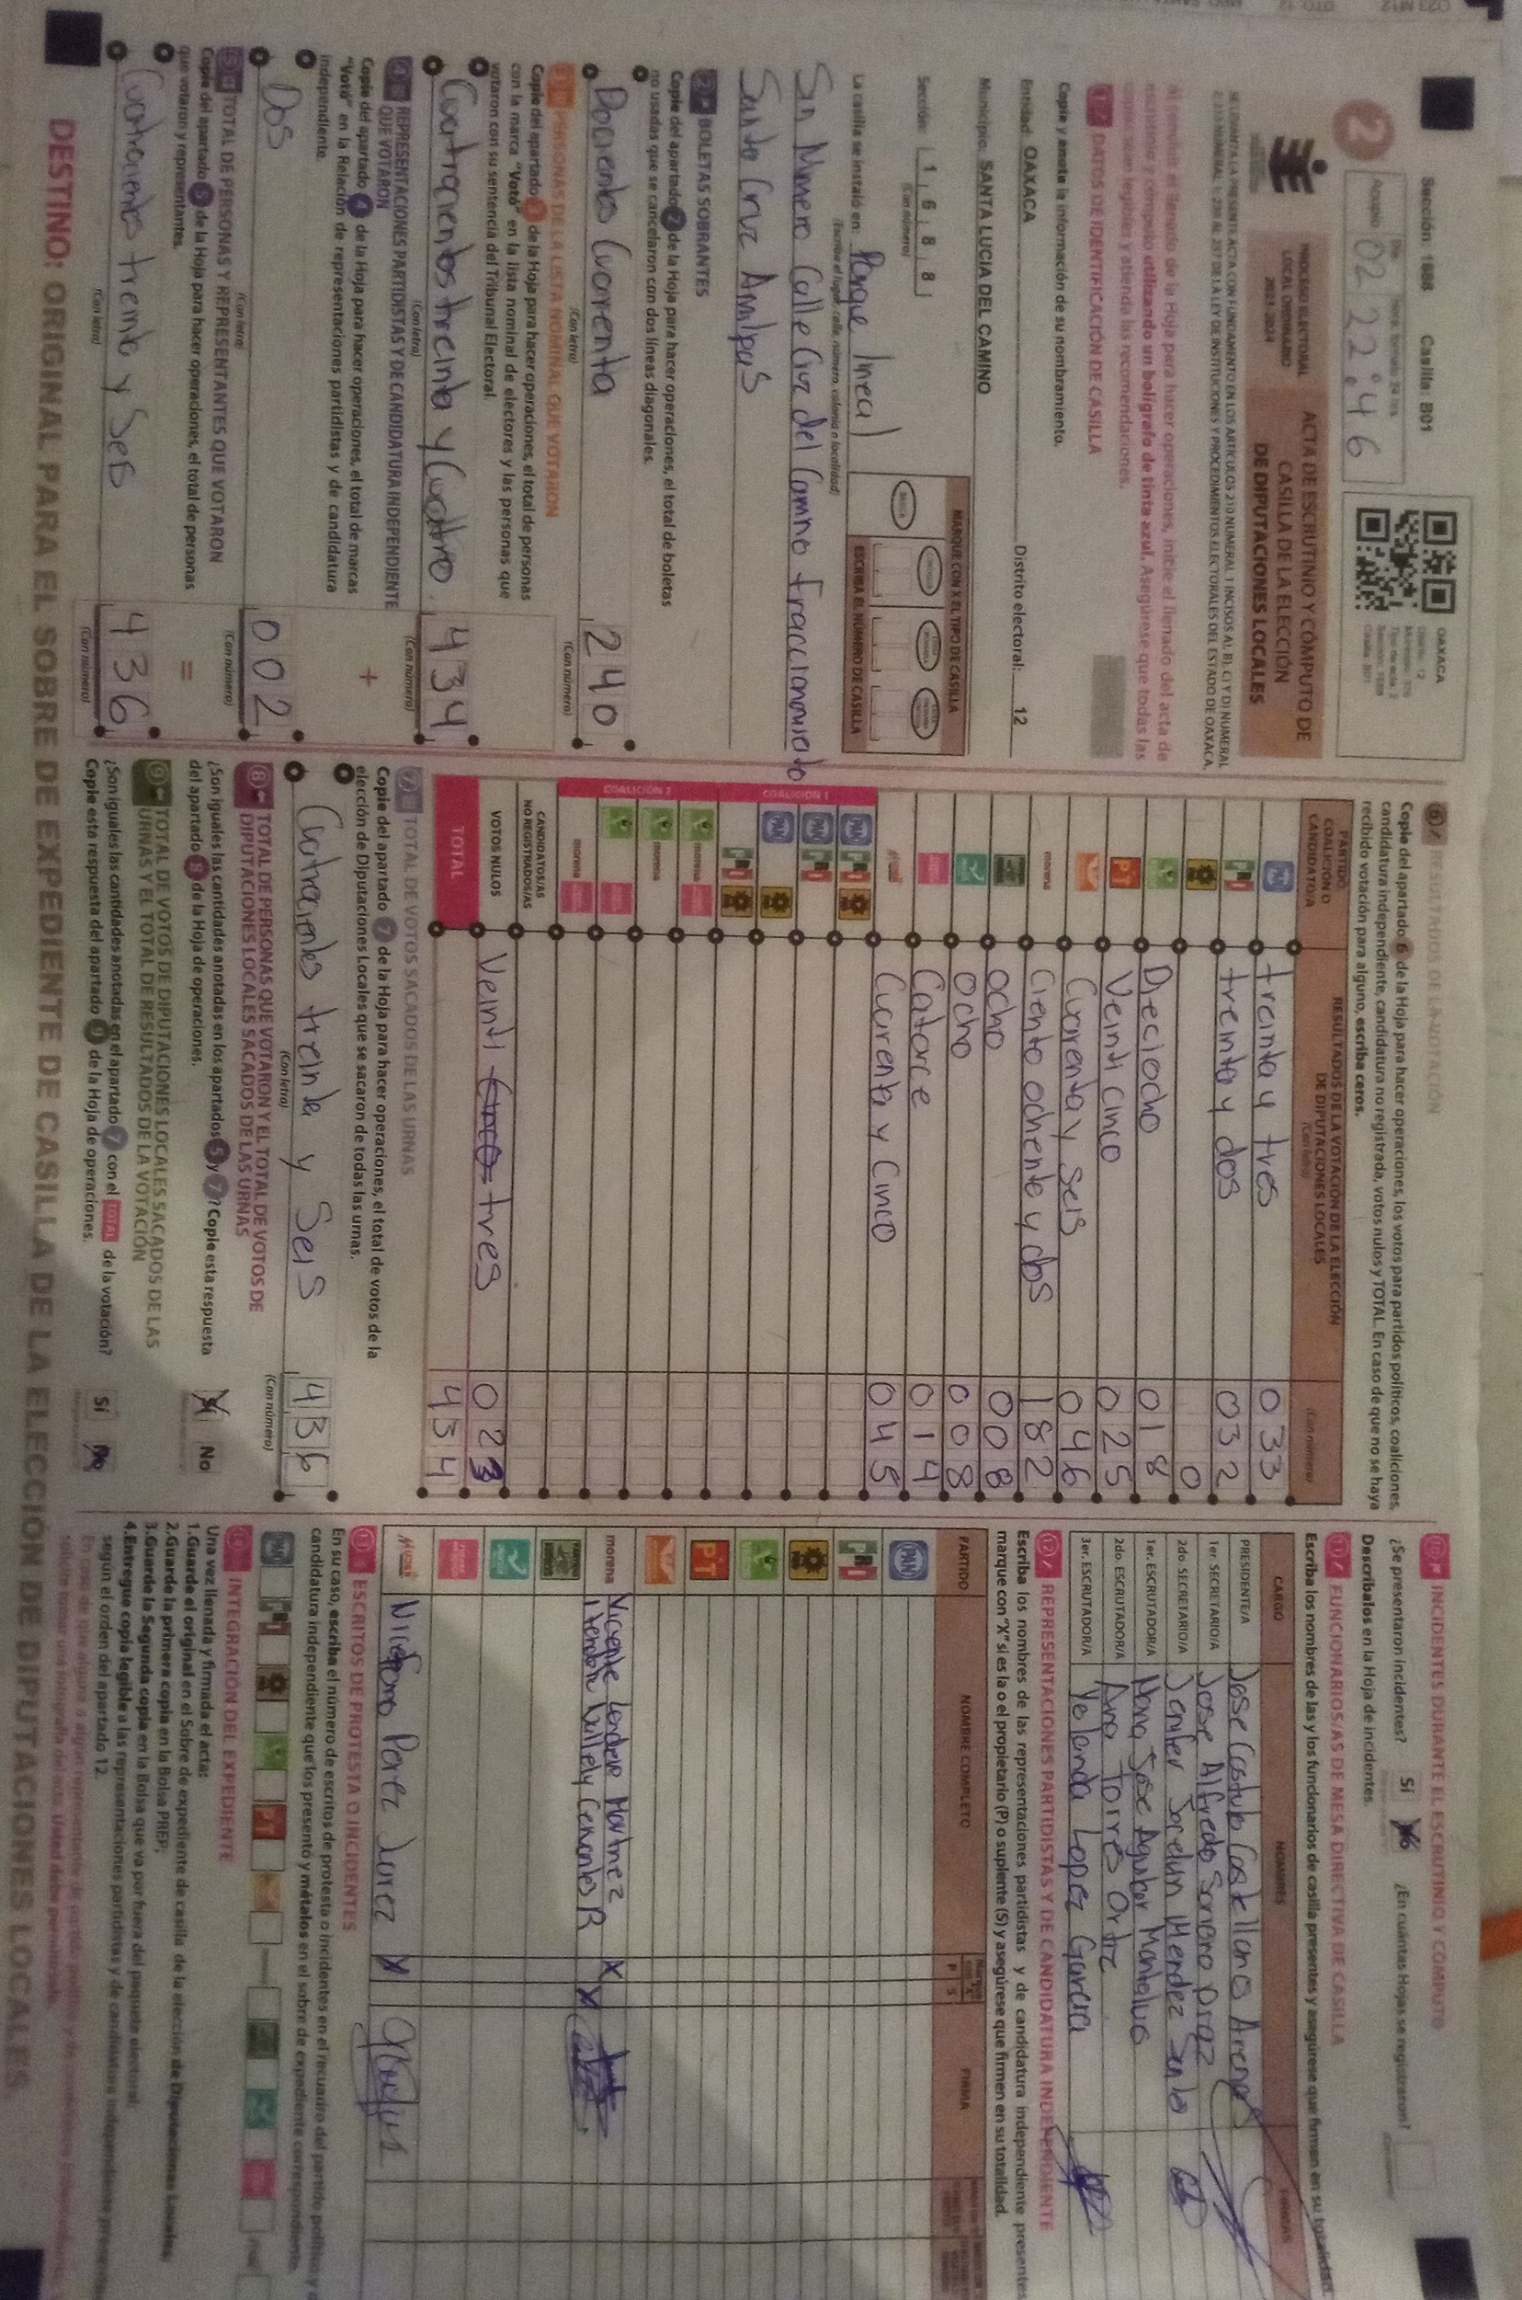 Sección: 1688 Casilla: B01
Acopio
02 22:46
OAXACA
2
PROCESO ELECTORAL
LOCAL ORDINARIO
2023-2024
ACTA DE ESCRUTINIO Y CÓMPUTO DE
CASILLA DE LA ELECCIÓN
DE DIPUTACIONES LOCALES
Al terminar el llenado de la Hoja para hacer operaciones, inicie el llenado del acta de
escrutinio y cómputo utilizando un bolígrafo de tinta azul. Asegúrese que todas las
copias sean legibles y atienda las recomendaciones.
1 DATOS DE IDENTIFICACIÓN DE CASILLA
Copie y anote la información de su nombramiento.
Entidad: OAXACA Distrito electoral: 12
Municipio: SANTA LUCIA DEL CAMINO
Sección: 1 6 8 8
(Con número)
MARQUE CON X EL TIPO DE CASILLA
ESCRIBA EL NÚMERO DE CASILLA
La casilla se instaló en: Parque lineal
(Escriba el lugar, calle, número, colonia o localidad)
Sn Numero Calle Cruz del Camino fraccionamiento
Santa Cruz Amilpas
2 BOLETAS SOBRANTES
Copie del apartado 2 de la Hoja para hacer operaciones, el total de boletas
no usadas que se cancelaron con dos líneas diagonales.
Docientos Cuarenta 240
(Con letra) (Con número)
3 PERSONAS DE LA LISTA NOMINAL QUE VOTARON
Copie del apartado 3 de la Hoja para hacer operaciones, el total de personas
con la marca "Votó" en la lista nominal de electores y las personas que
votaron con su sentencia del Tribunal Electoral.
Cuatracientos treinta y Cuattro 434
(Con letra) (Con número)
4 REPRESENTACIONES PARTIDISTAS Y DE CANDIDATURA INDEPENDIENTE
QUE VOTARON
Copie del apartado 4 de la Hoja para hacer operaciones, el total de marcas
"Votó" en la Relación de representaciones partidistas y de candidatura
independiente.
+
Dos 002
(Con letra) (Con número)
5 TOTAL DE PERSONAS Y REPRESENTANTES QUE VOTARON
Copie del apartado 5 de la Hoja para hacer operaciones, el total de personas
que votaron y representantes.
=
Cuatracientos treinta y Seis 436
(Con letra) (Con número)
6 RESULTADOS DE LA VOTACIÓN
Copie del apartado 6 de la Hoja para hacer operaciones, los votos para partidos políticos, coaliciones,
candidatura independiente, candidatura no registrada, votos nulos y TOTAL. En caso de que no se haya
recibido votación para alguno, escriba ceros.
PARTIDO,
COALICIÓN O
CANDIDATO/A
RESULTADOS DE LA VOTACIÓN DE LA ELECCIÓN
DE DIPUTACIONES LOCALES
(Con letra) (Con número)
PAN treinta y tres 033
PRI treinta y dos 032
0
Dieciocho 018
PT Veinti cinco 025
Cuarenta y seis 046
morena Ciento ochenta y dos 182
ocho 008
ocho 008
Catorce 014
Cuarenta y Cinco 045
COALICIÓN 1
COALICIÓN 2
CANDIDATOS/AS
NO REGISTRADOS/AS
VOTOS NULOS Veinti tres 023
TOTAL 434
7 TOTAL DE VOTOS SACADOS DE LAS URNAS
Copie del apartado 7 de la Hoja para hacer operaciones, el total de votos de la
elección de Diputaciones Locales que se sacaron de todas las urnas.
Cuatracientos treinta y Seis 436
(Con letra) (Con número)
8 TOTAL DE PERSONAS QUE VOTARON Y EL TOTAL DE VOTOS DE
DIPUTACIONES LOCALES SACADOS DE LAS URNAS
¿Son iguales las cantidades anotadas en los apartados 5 y 7? Copie esta respuesta
del apartado 8 de la Hoja de operaciones.
Sí No
9 TOTAL DE VOTOS DE DIPUTACIONES LOCALES SACADOS DE LAS
URNAS Y EL TOTAL DE RESULTADOS DE LA VOTACIÓN
¿Son iguales las cantidades anotadas en el apartado 7 con el TOTAL de la votación?
Copie esta respuesta del apartado 9 de la Hoja de operaciones.
Sí No
10 INCIDENTES DURANTE EL ESCRUTINIO Y CÓMPUTO
¿Se presentaron incidentes? Sí No ¿En cuántas Hojas se registraron?
Descríbalos en la Hoja de incidentes.
11 FUNCIONARIOS/AS DE MESA DIRECTIVA DE CASILLA
Escriba los nombres de las y los funcionarios de casilla presentes y asegúrese que firmen en su totalidad.
CARGO NOMBRES FIRMAS
PRESIDENTE/A Jose Castulo Castellanos Arenas
1er. SECRETARIO/A Jose Alfredo Soriano Diaz
2do. SECRETARIO/A Jenifer Joselyn Mendez Santos
1er. ESCRUTADOR/A Maria Jose Aguilar Montalvo
2do. ESCRUTADOR/A Ana Torres Ortiz
3er. ESCRUTADOR/A Yolanda Lopez Garcia
12 REPRESENTACIONES PARTIDISTAS Y DE CANDIDATURA INDEPENDIENTE
Escriba los nombres de las representaciones partidistas y de candidatura independiente presentes,
marque con "X" si es la o el propietario (P) o suplente (S) y asegúrese que firmen en su totalidad.
PARTIDO NOMBRE COMPLETO P S FIRMA
PAN
PRI
PT
morena Vicente Martinez X
X
Niceforo Perez Juarez X
11 ESCRITOS DE PROTESTA O INCIDENTES
En su caso, escriba el número de escritos de protesta o incidentes en el recuadro del partido político y
candidatura independiente que los presentó y métalos en el sobre de expediente correspondiente.
INTEGRACIÓN DEL EXPEDIENTE
Una vez llenada y firmada el acta:
1.Guarde el original en el Sobre de expediente de casilla de la elección de Diputaciones Locales;
2.Guarde la primera copia en la Bolsa PREP;
3.Guarde la Segunda copia en la Bolsa que va por fuera del paquete electoral;
4.Entregue copia legible a las representaciones partidistas y de candidatura independiente presentes
según el orden del apartado 12.
DESTINO: ORIGINAL PARA EL SOBRE DE EXPEDIENTE DE CASILLA DE LA ELECCIÓN DE DIPUTACIONES LOCALES.